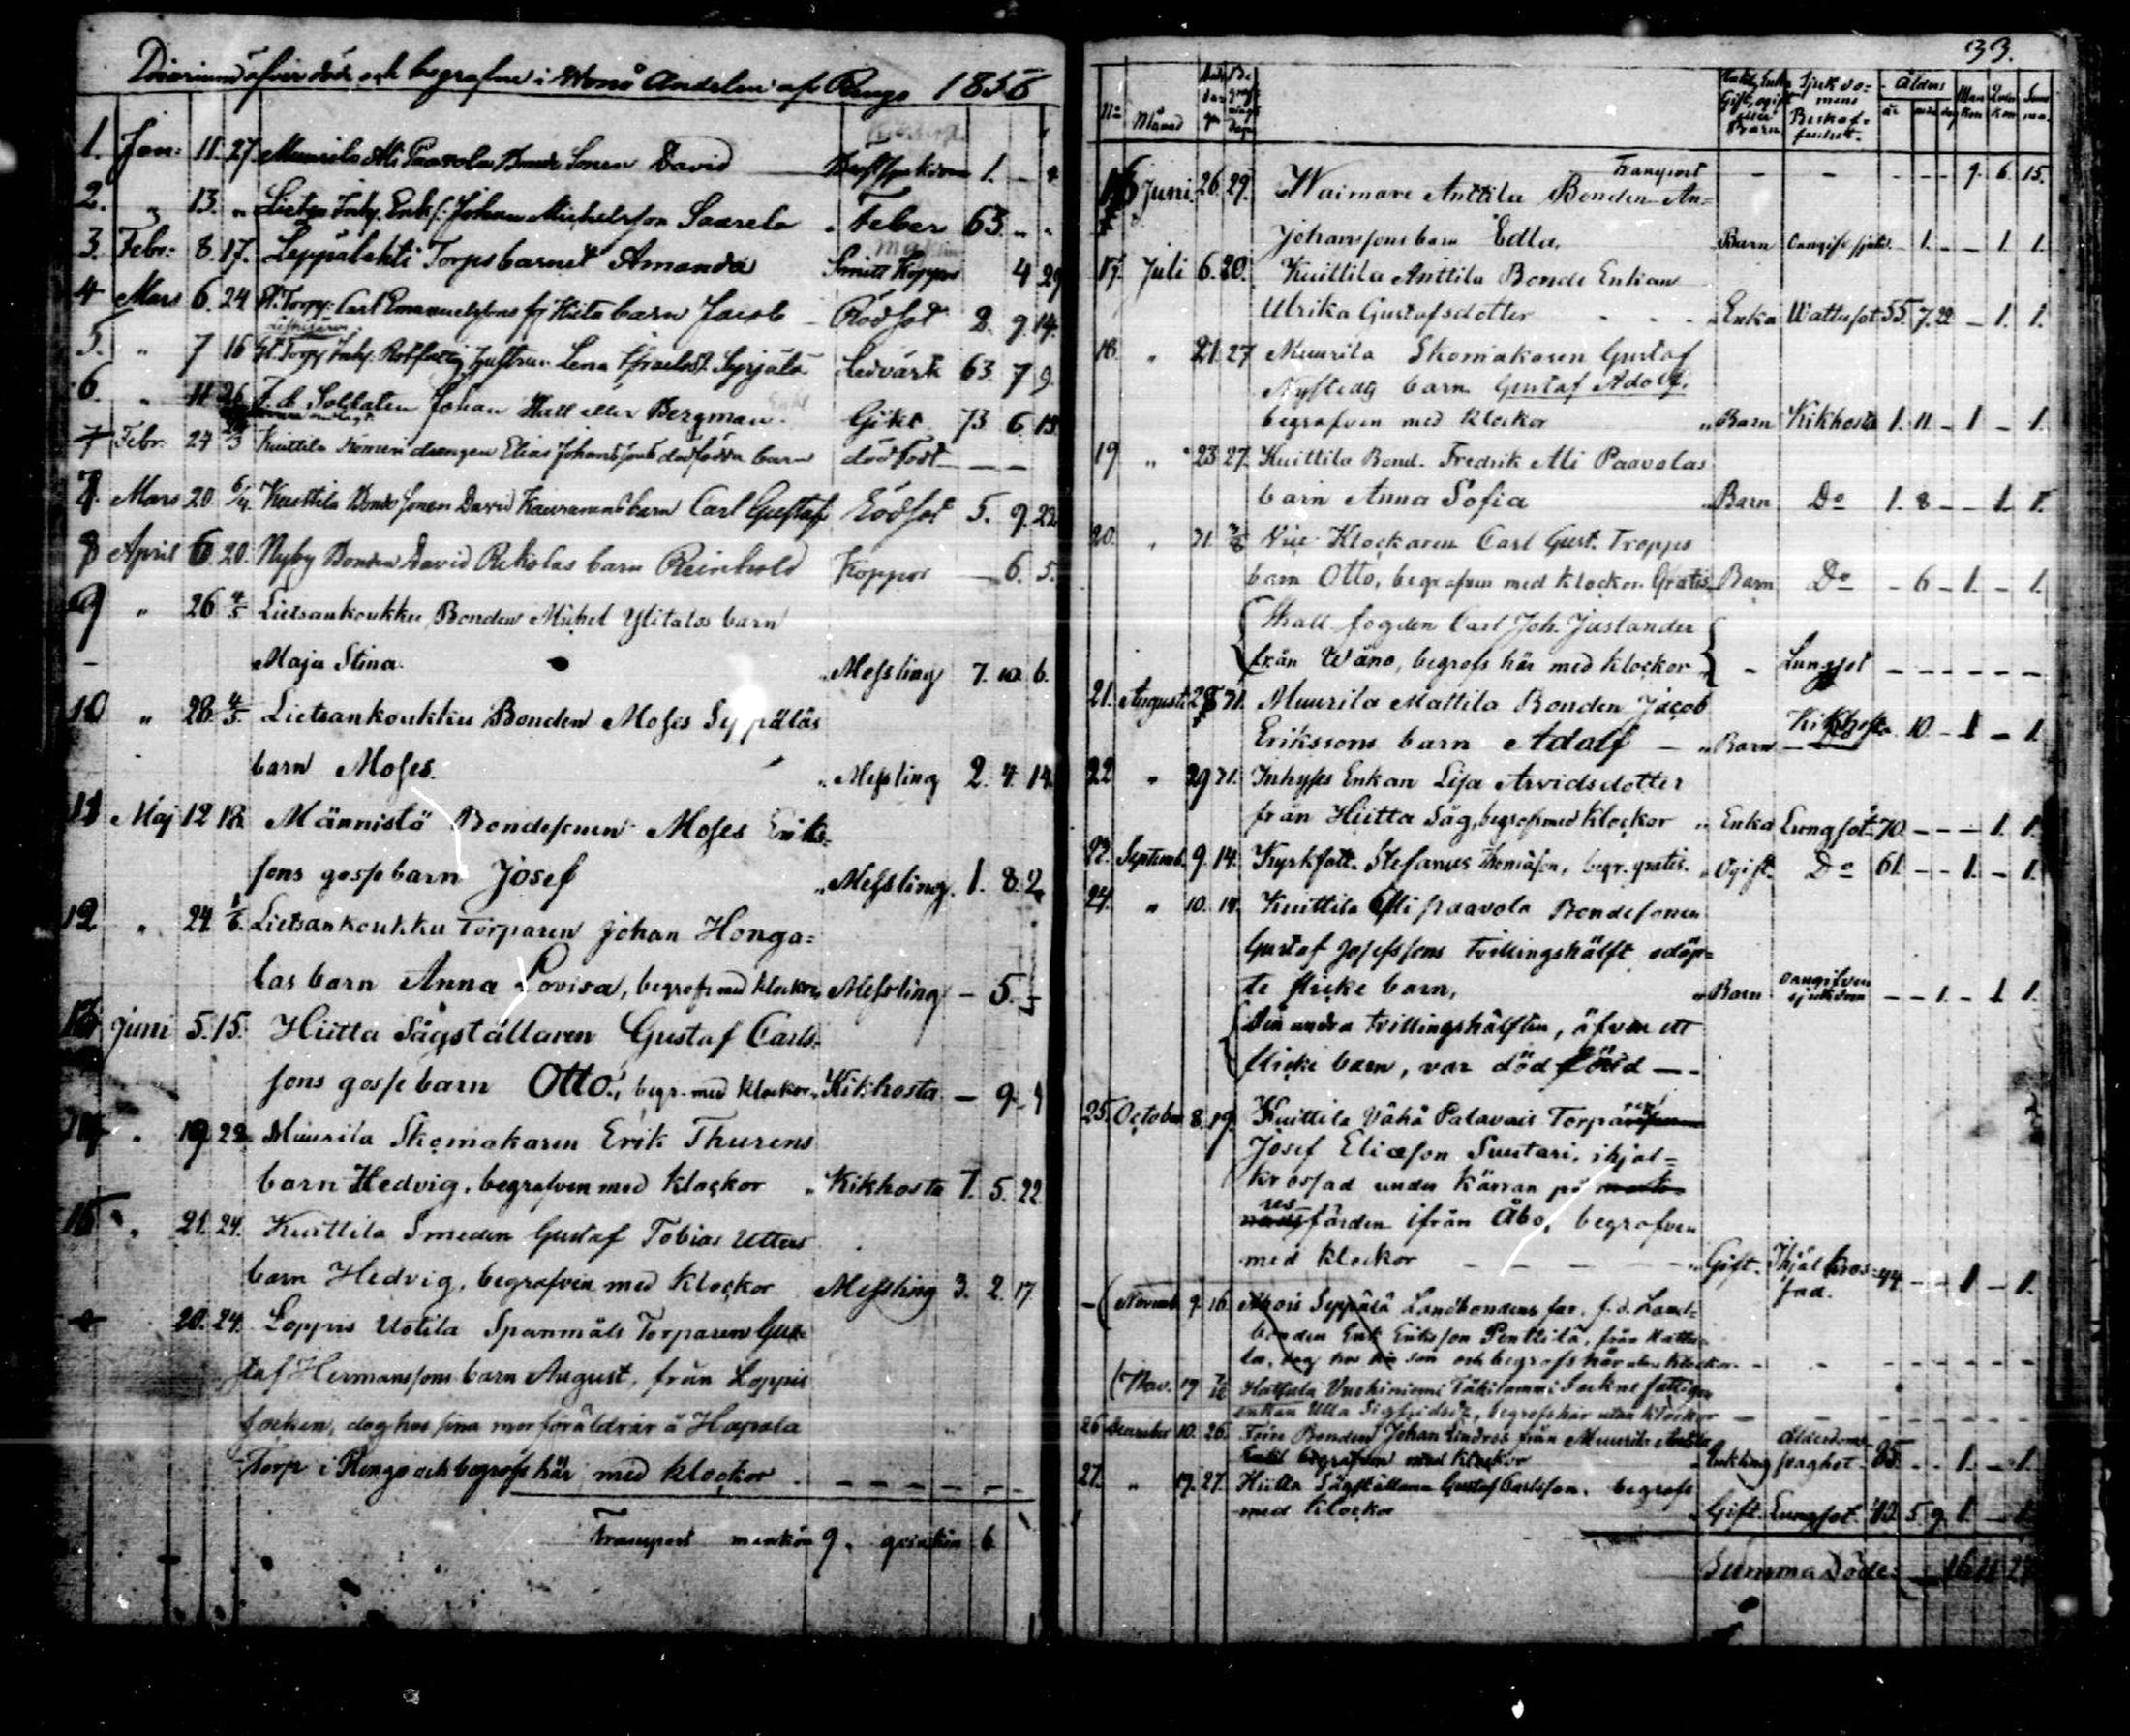 Diarium öfver döde och begrafne i Wånå Andelen af Rengo 1856
1. Jan: 11. 27. Muurila Ali Paavolas Bonde Sonen David 1. –
2. " 13. " Lietsa Inhy. Enk. Johan Michelsson Saarela " Feber 63. " "
3. Febr: 8. 17. Leppälahti Torpsbarnet Amanda Smitt Koppor 4 29
4 Mars 6. 24 Carl Emanuelssons barn Jacob – Rödsot 2. 9. 14.
5. " 7 16 Inhy. Hustrun Lena Syrjälä Ledvärk 63 7 9.
6. " 11 26 F. d. Soldaten Johan Hall eller Bergman. Gikt 73 6. 13
7 Febr. 24 Kuittila drengen Elias Johanssons dödfödda barn dödfödt – –
8. Mars 20. 6/4 Kuittila Bonde Sonen David barn Carl Gustaf Rödsot 5. 9. 22
8 April 6. 20. Nyby Bonden David Rekolas barn Reinhold Koppor – 6. 5.
9 " 26 4/5 Lietsankoukku Bonden Michel Ylitalos barn
Maja Stina. " Messling 7. 10. 6.
10 " 28. 4/5. Lietsankoukku Bonden Moses Seppäläs
barn Moses. " Messling 2. 4. 14.
11 Maj 12 18. Männistö Bondesonen Moses Eriks=
sons gossebarn Josef " Messling. 1. 8. 2
12 " 24. 1/6. Lietsankoukku Torparen Johan Honga=
las barn Anna Lovisa, begrofs med klockor, Messling – 5.
Juni 5. 15. Hiitta Sågställaren Gustaf Carls=
sons gossebarn Otto, begr. med klockor, Kikhosta – 9.
" 19. 22. Muurila Skomakaren Erik Thurens
barn Hedvig, begrafven med klockor " Kikhosta 7. 5. 22.
15 " 21. 24. Kuittila Smeden Gustaf Tobias Utters
barn Hedvig, begrafven med klockor Messling 3. 2. 17
20. 24. Loppis Uotila Spanmäls Torparen Gus=
taf Hermanssons barn August, från Loppis
socken, dog hos sina morföräldrar å Hapala
Torp i Rengo och begrofs här med klockor – – – – –
Transport mankön 9. qvinkön 6.
33.
No Månad
Gift, ogift eller Barn Sjukdo=mens Beskaf=fenhet. Ålder år Man kön Qvin kön Sum ma.
Transport – – – – – 9. 6. 15.
16 Juni 26. 29. Waimare Anttila Bonden An=
Johanssons barn Edla, " Barn 1. – – 1. 1.
17. Juli 6. 20. Kuittila Anttila Bonde Enkan
Ulrika Gustafsdotter - - - " Enka Wattusot 55. 7. 22 – 1. 1.
18. " 21. 27 Muurila Skomakaren Gustaf
barn Gustaf Adolf,
begrafven med klockor " Barn Kikhosta 1. 11. – 1 – 1.
19 " 23. 27. Kuittila Bond. Fredrik Ali Paavolas
barn Anna Sofia " Barn Do 1. 8 – – 1. 1.
20. " 31 3/8 Vice Klockaren Carl Gust. Tropps
barn Otto, begrafven med klockor. Gratis. Barn Do – 6 – 1. – 1.
fogden Carl Joh. Juslander
från Wånå, begrofs här med klockor – Lungsot – – – – – –
21. Augusti 28 31. Muurila Mattila Bonden Jacob
Erikssons barn Adolf – " Barn Kikhosta 10. – 1 – 1.
22 " 29 31. Inhyses Enkan Lisa Arvidsdotter
från Hiitta Såg, begrofs med klockor " Enka Lungsot 70. – – – 1. 1.
Septemb. 9. 14. Kyrkfatt. Stefanus Thomasson, begr. gratis. " Ogift Do 61. – – 1. – 1.
24. " 10. 14. Kuittila Ali Paavola Bondesonen
Gustaf Josefssons tvillingshälft odöp=
te flicke barn, " Barn oangifven sjukdom – – 1. – 1. 1.
Den andra tvillingshälften, äfven ett
flicke barn, var dödfödd – –
25. October 8. 19. Kuittila Vähä Palavais Torparen
Josef Eliasson Suutari, ihjäl=
krossad under kärran på
resfärden ifrån Åbo, begrafven
med klockor – – – – " Gift. Ihjäl kros=sad. 44 – – 1 – 1.
– Novemb. 9. 16. Seppälä Landbondens far, f. d. Land=
bonden Erik Eriksson Penttilä, från Hattu=
la, dog hos sin son och begrofs här utan klockor. – – – – – –
Nov. 19 Hattula Vuohiniemi Socknefattige
enkan Ulla Sigfridsdr, begrofs här utan klockor – – –
26 December 10. 26. Förre Bonden Johan Lindros från Muurila Anttila
begrafven med klockor " Enkling Ålderdoms svaghet 85. – – 1. – 1.
27. " 19. 27. Hiitta Sågställaren Gustaf Carlsson, begrofs
med klockor " Gift. Lungsot 5. 9. 1. – 1.
Summa Döde: 16 11 27